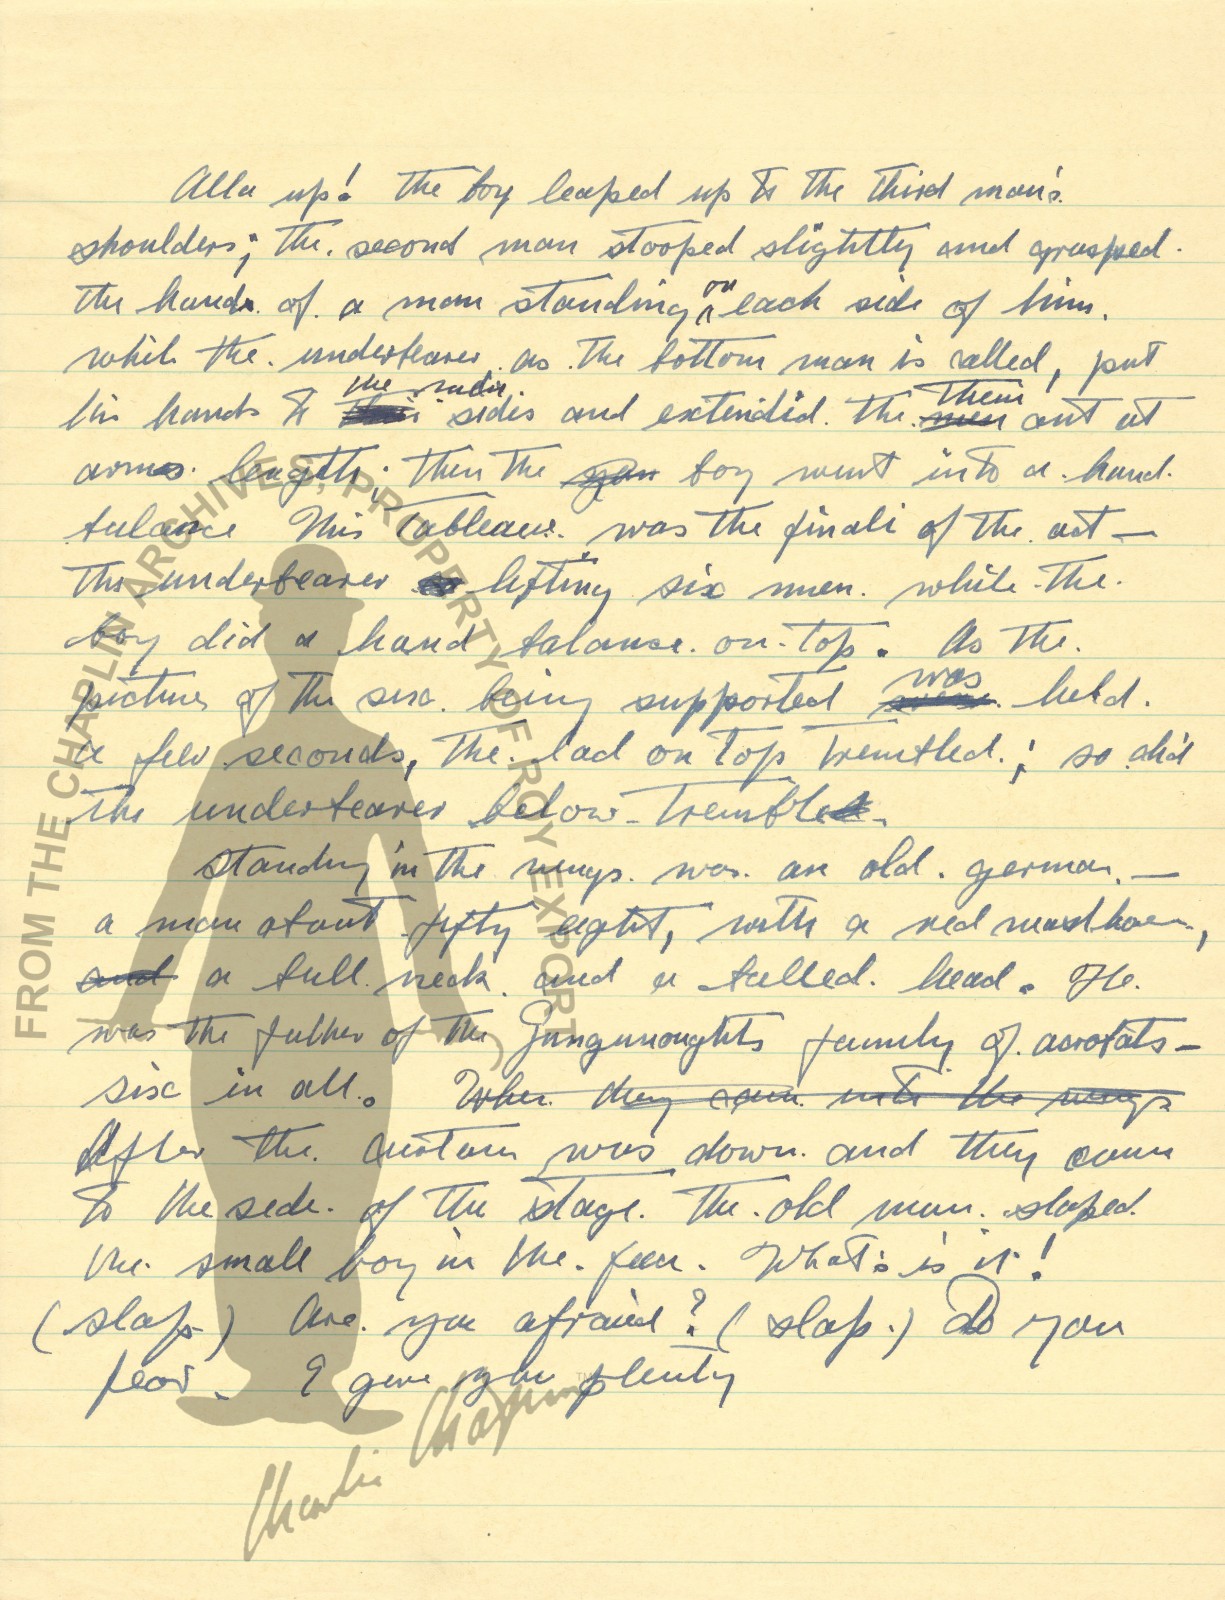 Alla up! the boy leaped up to the third man's
shoulders; the second man stooped slightly and grasped
the hands of a man standing on each side of him.
while the underbearer as the bottom man is called, put
his hands to the sides and extended the them out at
arms length; then the boy went into a hand
balance This Tableau was the finali of the act —
the underbearer lifting six men while the
boy did a hand balance on top. As the
picture of the six being supported was held
a few seconds, the lad on top trembled; so did
the underbearer below tremble.
Standing in the wings was an old german —
a man about fifty eight, with a red,
and a bull neck and a balled head. He
was the father of the family of acrobats —
six in all. When they came into the wings
After the curtain was down and they came
to the side of the stage the old man slaped
the small boy in the face. What's is it!
(slap) Are you afraid? (slap.) Do you
fear. I give you plenty
FROM THE CHAPLIN ARCHIVES, PROPERTY OF ROY EXPORT
Charlie Chaplin